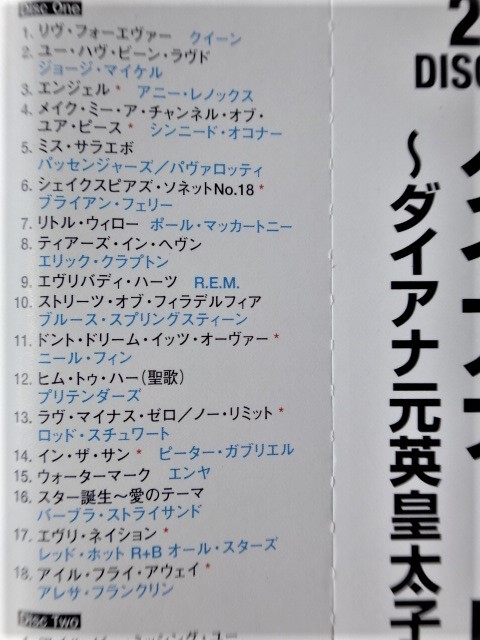 Disc One
1. リヴ・フォーエヴァー クイーン
2. ユー・ハヴ・ビーン・ラヴド
ジョージ・マイケル
3. エンジェル* アニー・レノックス
4. メイク・ミー・ア・チャンネル・オブ・
ユア・ピース* シンニード・オコナー
5. ミス・サラエボ
パッセンジャーズ／パヴァロッティ
6. シェイクスピアズ・ソネットNo.18*
ブライアン・フェリー
7. リトル・ウィロー ポール・マッカートニー
8. ティアーズ・イン・ヘヴン
エリック・クラプトン
9. エヴリバディ・ハーツ R.E.M.
10. ストリーツ・オブ・フィラデルフィア
ブルース・スプリングスティーン
11. ドント・ドリーム・イッツ・オーヴァー*
ニール・フィン
12. ヒム・トゥ・ハー(聖歌)
プリテンダーズ
13. ラヴ・マイナス・ゼロ／ノー・リミット*
ロッド・スチュワート
14. イン・ザ・サン* ピーター・ガブリエル
15. ウォーターマーク エンヤ
16. スター誕生〜愛のテーマ
バーブラ・ストライサンド
17. エヴリ・ネイション*
レッド・ホット R+B オール・スターズ
18. アイル・フライ・アウェイ*
アレサ・フランクリン
Disc Two
2
DISC
〜ダイアナ元英皇太子